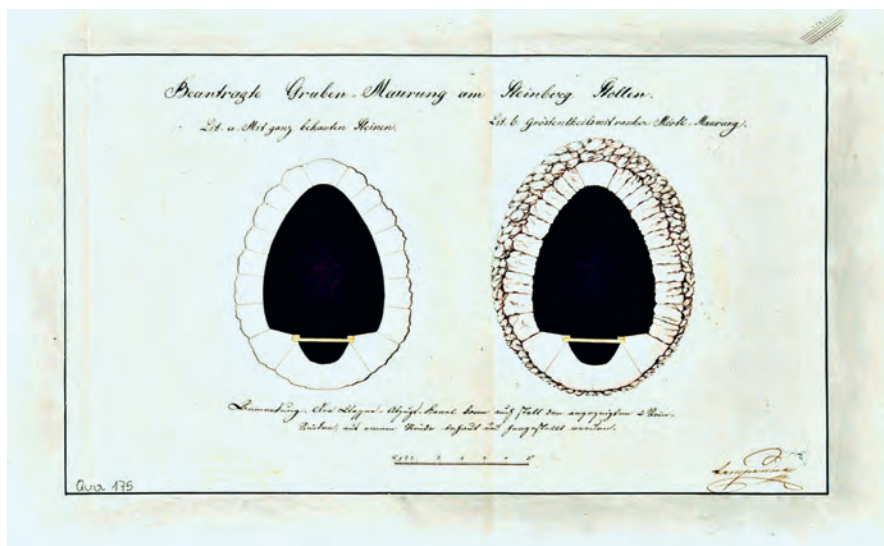 Beantragte Gruben-Maurung am Steinberg Stollen.
Lit. a. Mit ganz behauten Steinen.
Lit. b. Größtentheils mit rauher Mörtl-Maurung.
Bemerkung. Der Wasser-Abzugs-Kanal kann auch statt den angezeigten 2 Stein-
Stücken, aus einem Stücke behaut und hergestellt werden.
Qva 175